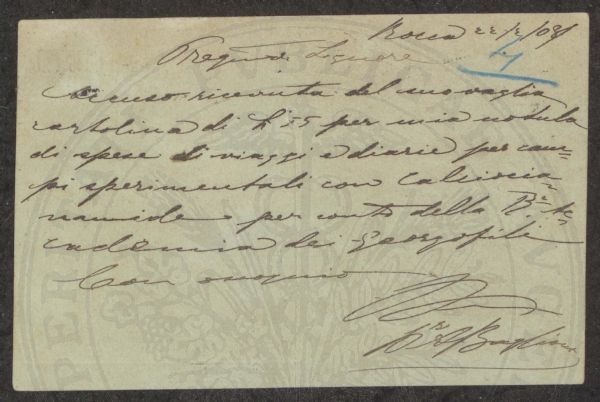 Rocca 22/2/08
Pregmo Signore
Accuso ricevuta del suo vaglia
cartolina di L 55 per mia notula
di spese di viaggi e diarie per cam=
pi sperimentali con Calciocia=
namide per conto della R. Ac=
cademia dei Georgofili
Con ossequio